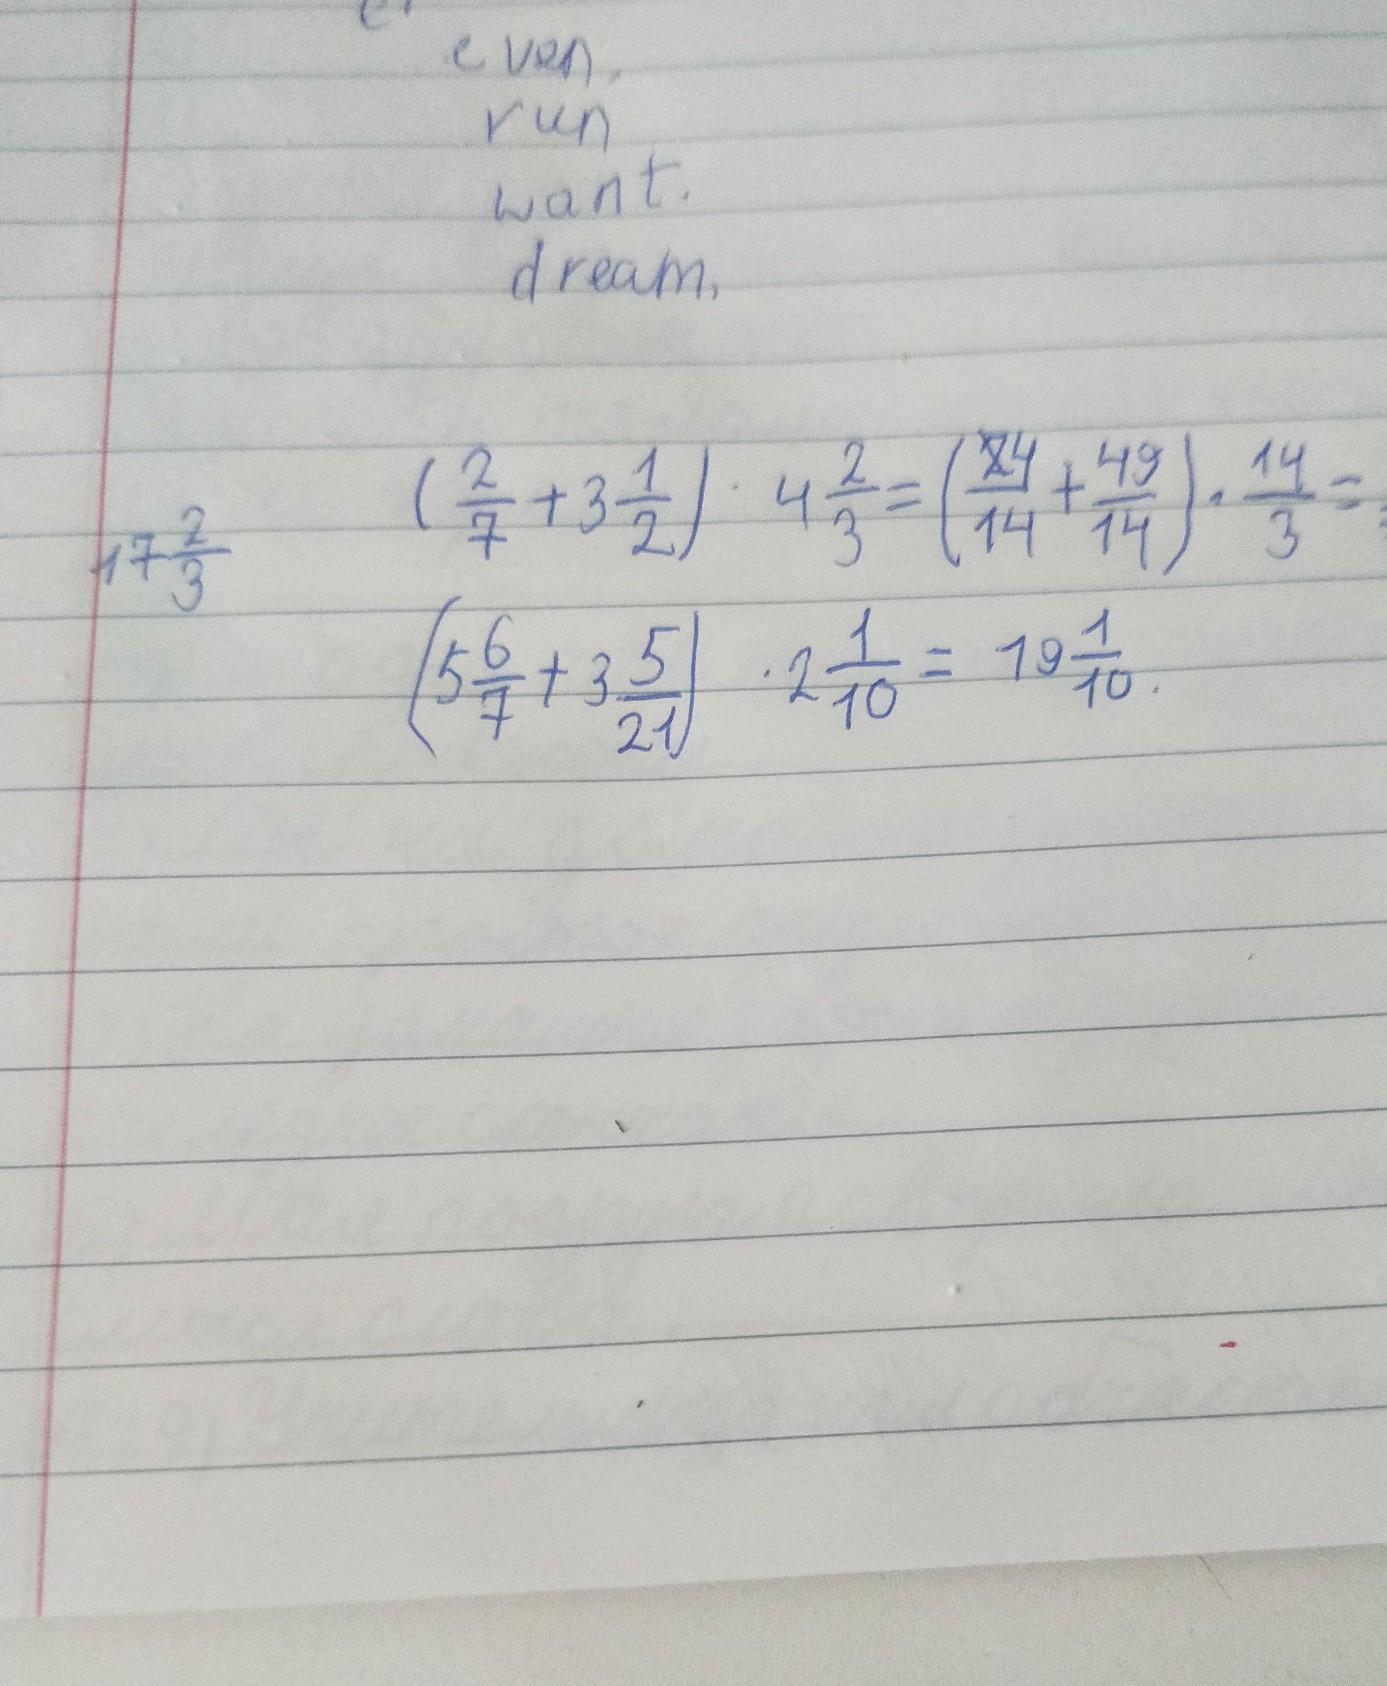 even.
run
want.
dream.
(2/7 + 3 1/2) · 4 2/3 = (4/14 + 49/14) · 14/3 =
17 2/3
(5 6/7 + 3 5/21) · 2 1/10 = 19 1/10.